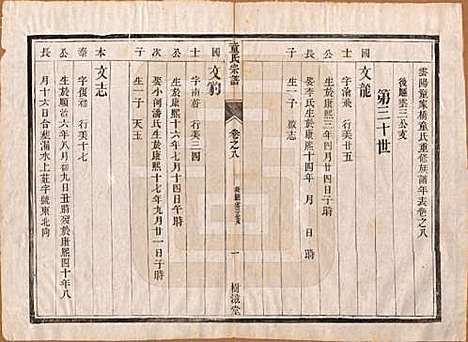 雲陽童家橋童氏重修族譜年表卷之八
後雲三公支
第三十世
國 文龍
士 字滄飛 行美廿五
公 生於康熙三年四月廿四日子時
長 娶李氏生於康熙十四年 月 日 時
子 生一子 徽志
童氏宗譜 卷之八 一 樹滋堂
國 文豹
士 字南蒼 行美三四
公 生於康熙十六年七月十四日午時
次 娶小河潘氏生於康熙十七年九月廿一日子時
子 生一子 天玉
本 文志
泰 字復初 行美十七
公 生於順治六年八月初九日丑時歿於康熙四十年八
長 月十六日合葬漏水上莊字號東北向